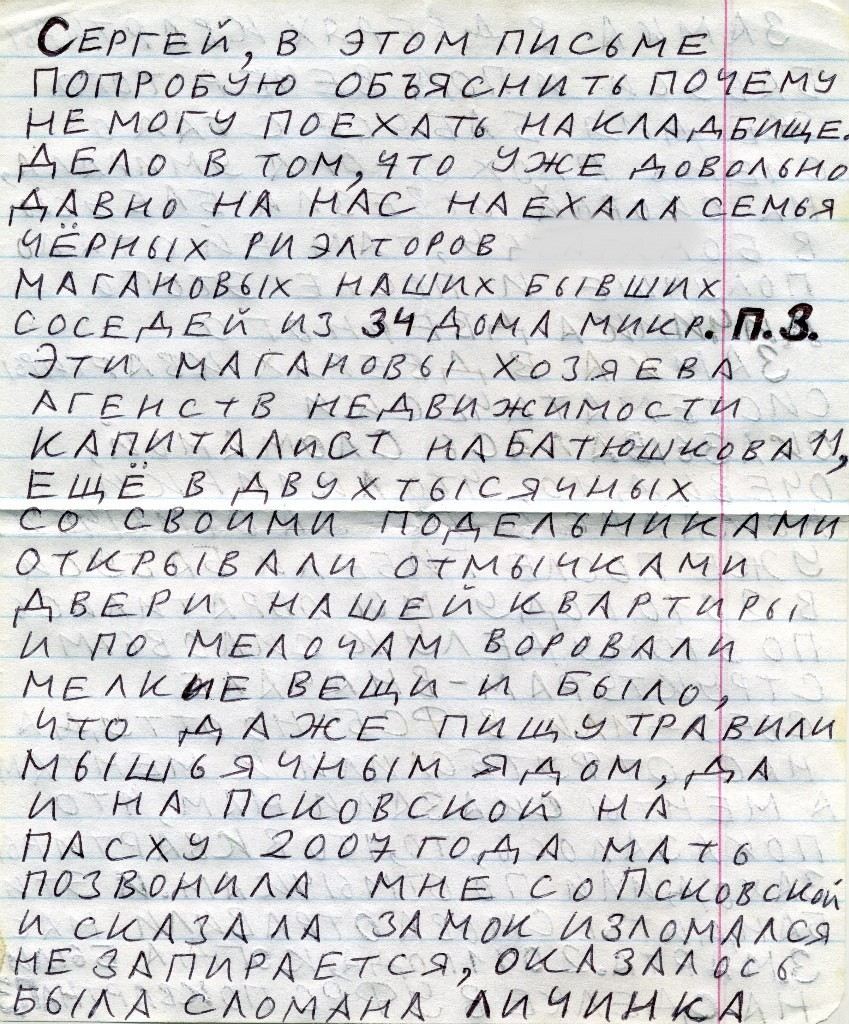 СЕРГЕЙ, В ЭТОМ ПИСЬМЕ
ПОПРОБУЮ ОБЪЯСНИТЬ ПОЧЕМУ
НЕ МОГУ ПОЕХАТЬ НА КЛАДБИЩЕ.
ДЕЛО В ТОМ, ЧТО УЖЕ ДОВОЛЬНО
ДАВНО НА НАС НАЕХАЛА СЕМЬЯ
ЧЁРНЫХ РИЭЛТОРОВ
МАГАНОВЫХ НАШИХ БЫВШИХ
СОСЕДЕЙ ИЗ 34 ДОМА МИКР. П.З.
ЭТИ МАГАНОВЫ ХОЗЯЕВА
АГЕНСТВ НЕДВИЖИМОСТИ
КАПИТАЛИСТ НА БАТЮШКОВА 11,
ЕЩЁ В ДВУХТЫСЯЧНЫХ
СО СВОИМИ ПОДЕЛЬНИКАМИ
ОТКРЫВАЛИ ОТМЫЧКАМИ
ДВЕРИ НАШЕЙ КВАРТИРЫ
И ПО МЕЛОЧАМ ВОРОВАЛИ
МЕЛКИЕ ВЕЩИ-И БЫЛО,
ЧТО ДАЖЕ ПИЩУ ТРАВИЛИ
МЫШЬЯЧНЫМ ЯДОМ, ДА
И НА ПСКОВСКОЙ НА
ПАСХУ 2007 ГОДА МАТЬ
ПОЗВОНИЛА МНЕ СО ПСКОВСКОЙ
И СКАЗАЛА ЗАМОК ИЗЛОМАЛСЯ
НЕ ЗАПИРАЕТСЯ, ОКАЗАЛОСЬ
БЫЛА СЛОМАНА ЛИЧИНКА